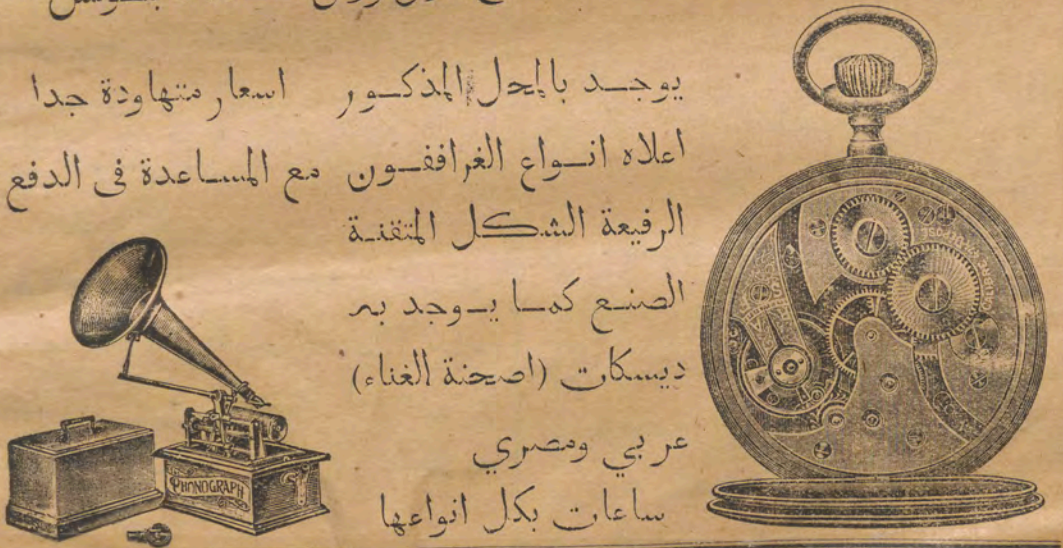 يوجد بالمحل المذكور
اعلاه انواع الغرافون
الرفيعة الشكل المتقنة
الصنع كما يوجد به
ديسكات (اصحنة الغناء)
عربي ومصري
ساعات بكل انواعها
اسعار متهاودة جدا
مع المساعدة في الدفع
PHONOGRAPH